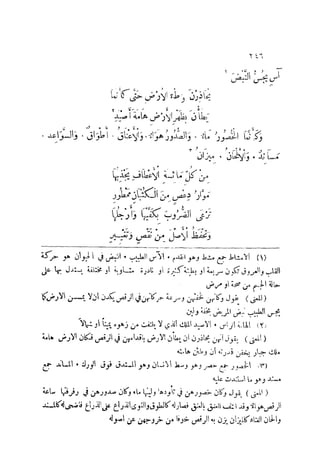 ٢٤٦
آسٍ يَجُسُّ النَّبْضَ ١
يُحَاذِرْنَ وَطْءَ الْأَرْضِ حَتَّى كَأَنَّمَا
يَطَأْنَ بِظَهْرِ الْأَرْضِ هَامَةَ أَصْيَدِ ٢
وَكَأَنَّمَا الْخُصُورُ مَاءٌ ٠ وَالصُّدُورُ هَوَاءٌ ٠ وَالْأَعْنَاقُ ٠ أَطْوَاقٌ ٠ وَالسَّوَاعِدُ ٠
مَسَانِدُ ٠ وَالْأَلْحَانُ ٠ مِيزَانٌ ٣
مِنْ كُلِّ مَائِسَةِ الْأَعْطَافِ يَجْذِبُهَا
مَوَّارُ دِعْصٍ مِنَ الْكُثْبَانِ مَمْطُورِ
تَرْعَى الضُّرُوبَ بِكَفَّيْهَا وَأَرْجُلِهَا
وَتَحْفَظُ الْأَصْلَ مِنْ نَقْصٍ وَتَغْيِيرِ
(١) الامشاط جمع مشط وهو المقدم ٠ الآس الطبيب ٠ النبض في الحيوان هو حركة
القلب والعروق تكون سريعة او بطيئة كثيرة او نادرة متساوية او مختلفة يستدل بها على
حالة الجسم من صحة او مرض
( المعنى ) يقول وكأنهن لخفتهن وسرعة حركاتهن في الرقص يكدن ان لا يمسسن الارض كما
يجس الطبيب نبض المريض بخفة ولين
(٢) الهامة الراس ٠ الاصيد الملك الذي لا يلتفت من زهوه يمينًا او شمالاً
( المعنى ) يقول انهن يحاذرن ان يطأن الارض باقدامهن في الرقص فكأن الارض هامة
ملك جبار يخفن قدرته أن وطئن هامته
(٣) الخصور جمع خصر وهو وسط الانسان وهو المستدق فوق الورك ٠ المساند جمع
مسند وهو ما استندت عليه
( المعنى ) يقول وكأن خصورهن في تأودها ولينها ماء وكأن صدورهن في رقرقتها ساعة
الرقص هواء وقد التف العنق بالعنق فصار له كالطوق والتوى الذراع على الذراع فاضحى له كالمسند
وألحان الغناء كالميزان يزن به الرقص خوفًا من خروجهن عن اصوله